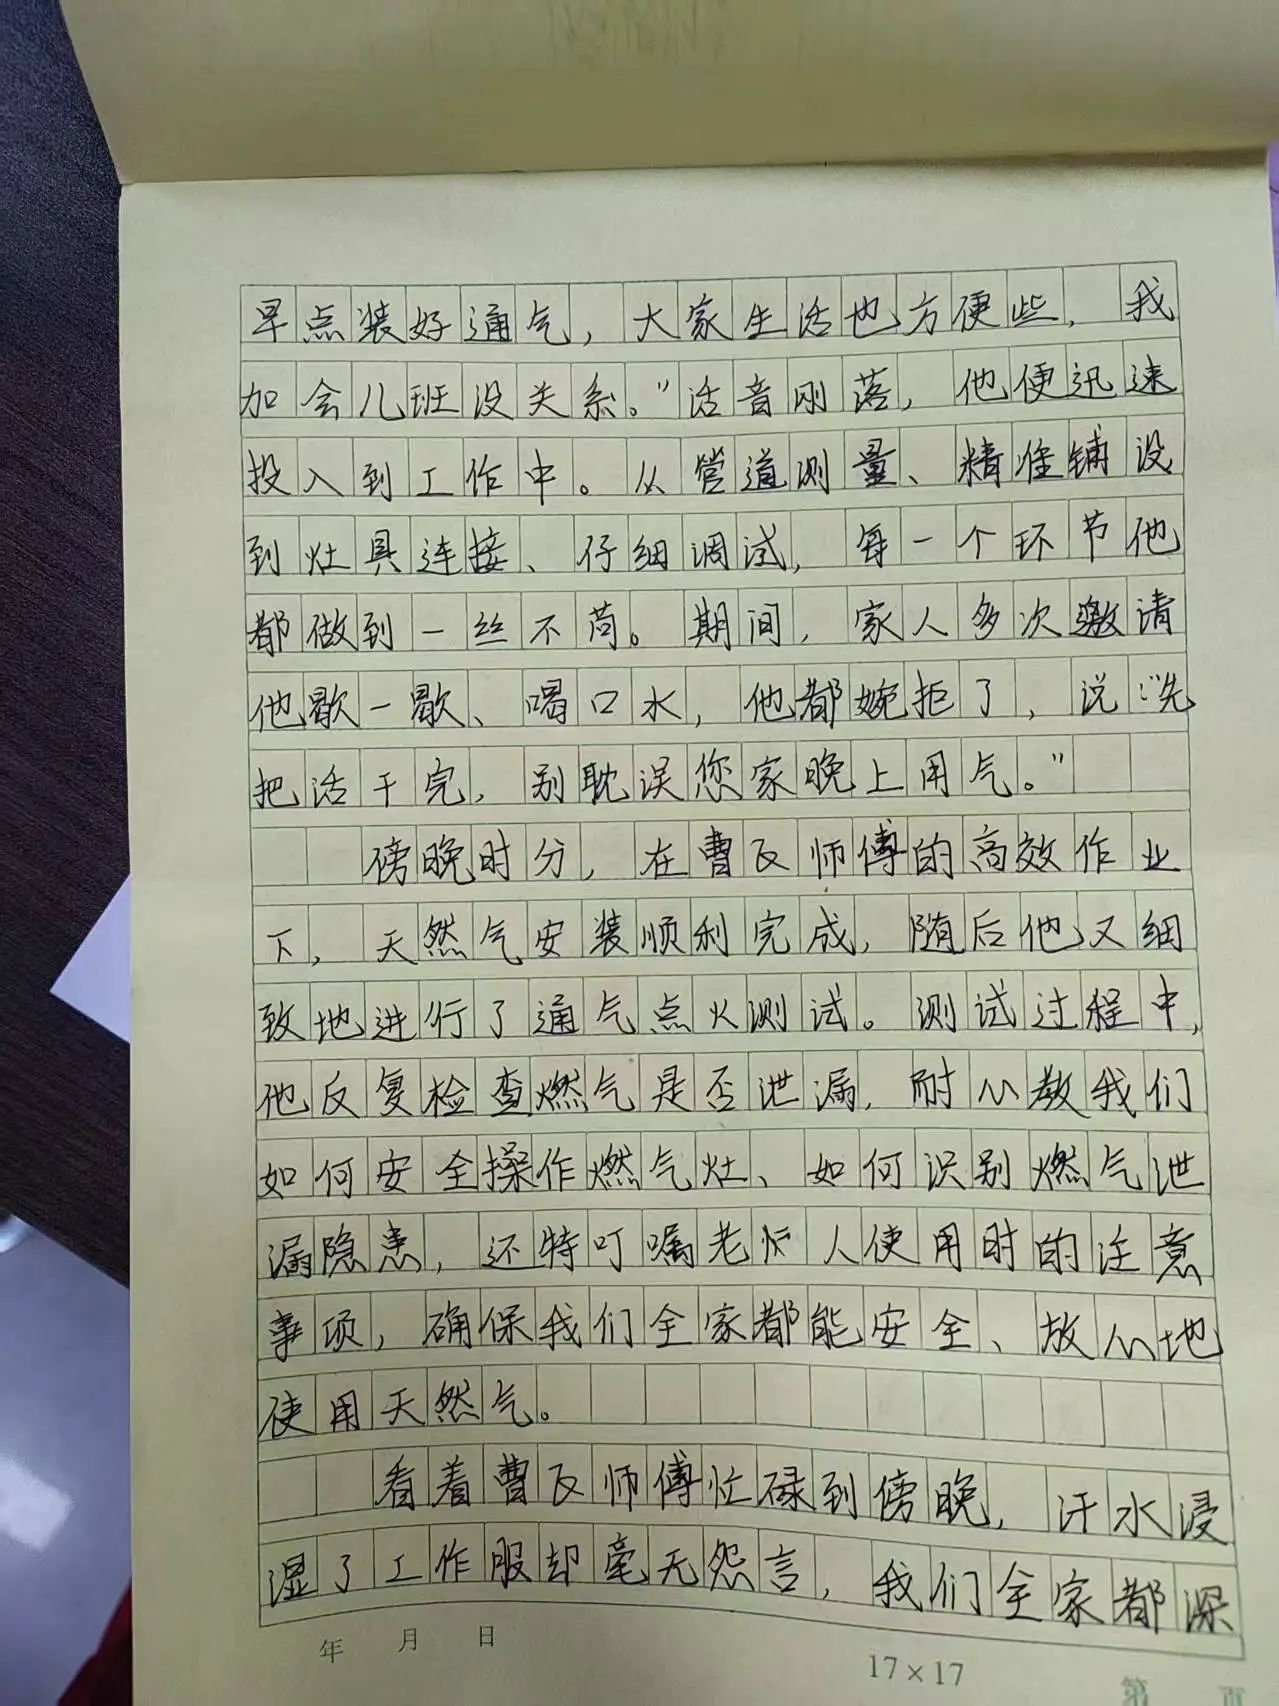 早点装好通气，大家生活也方便些，我
加会儿班没关系。”话音刚落，他便迅速
投入到工作中。从管道测量、精准铺设
到灶具连接、仔细调试，每一个环节他
都做到一丝不苟。期间，家人多次邀请
他歇一歇、喝口水，他都婉拒了，说：“先
把活干完，别耽误您家晚上用气。”
傍晚时分，在曹瓦师傅的高效作业
下，天然气安装顺利完成，随后他又细
致地进行了通气点火测试。测试过程中，
他反复检查燃气是否泄漏，耐心教我们
如何安全操作燃气灶、如何识别燃气泄
漏隐患，还特叮嘱老炉人使用时的注意
事项，确保我们全家都能安全、放心地
使用天然气。
看着曹瓦师傅忙碌到傍晚，汗水浸
湿了工作服却毫无怨言，我们全家都深
年 月 日
17×17
第 页